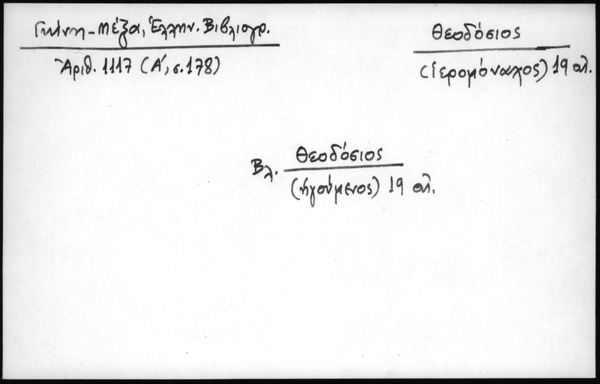 Γκίνη-Μέξα, Ἑλλην. Βιβλιογρ.
Ἀριθ. 1117 (Α΄, σ. 178)
Θεοδόσιος
(ἱερομόναχος) 19 αἰ.
Βλ. Θεοδόσιος
(ἡγούμενος) 19 αἰ.